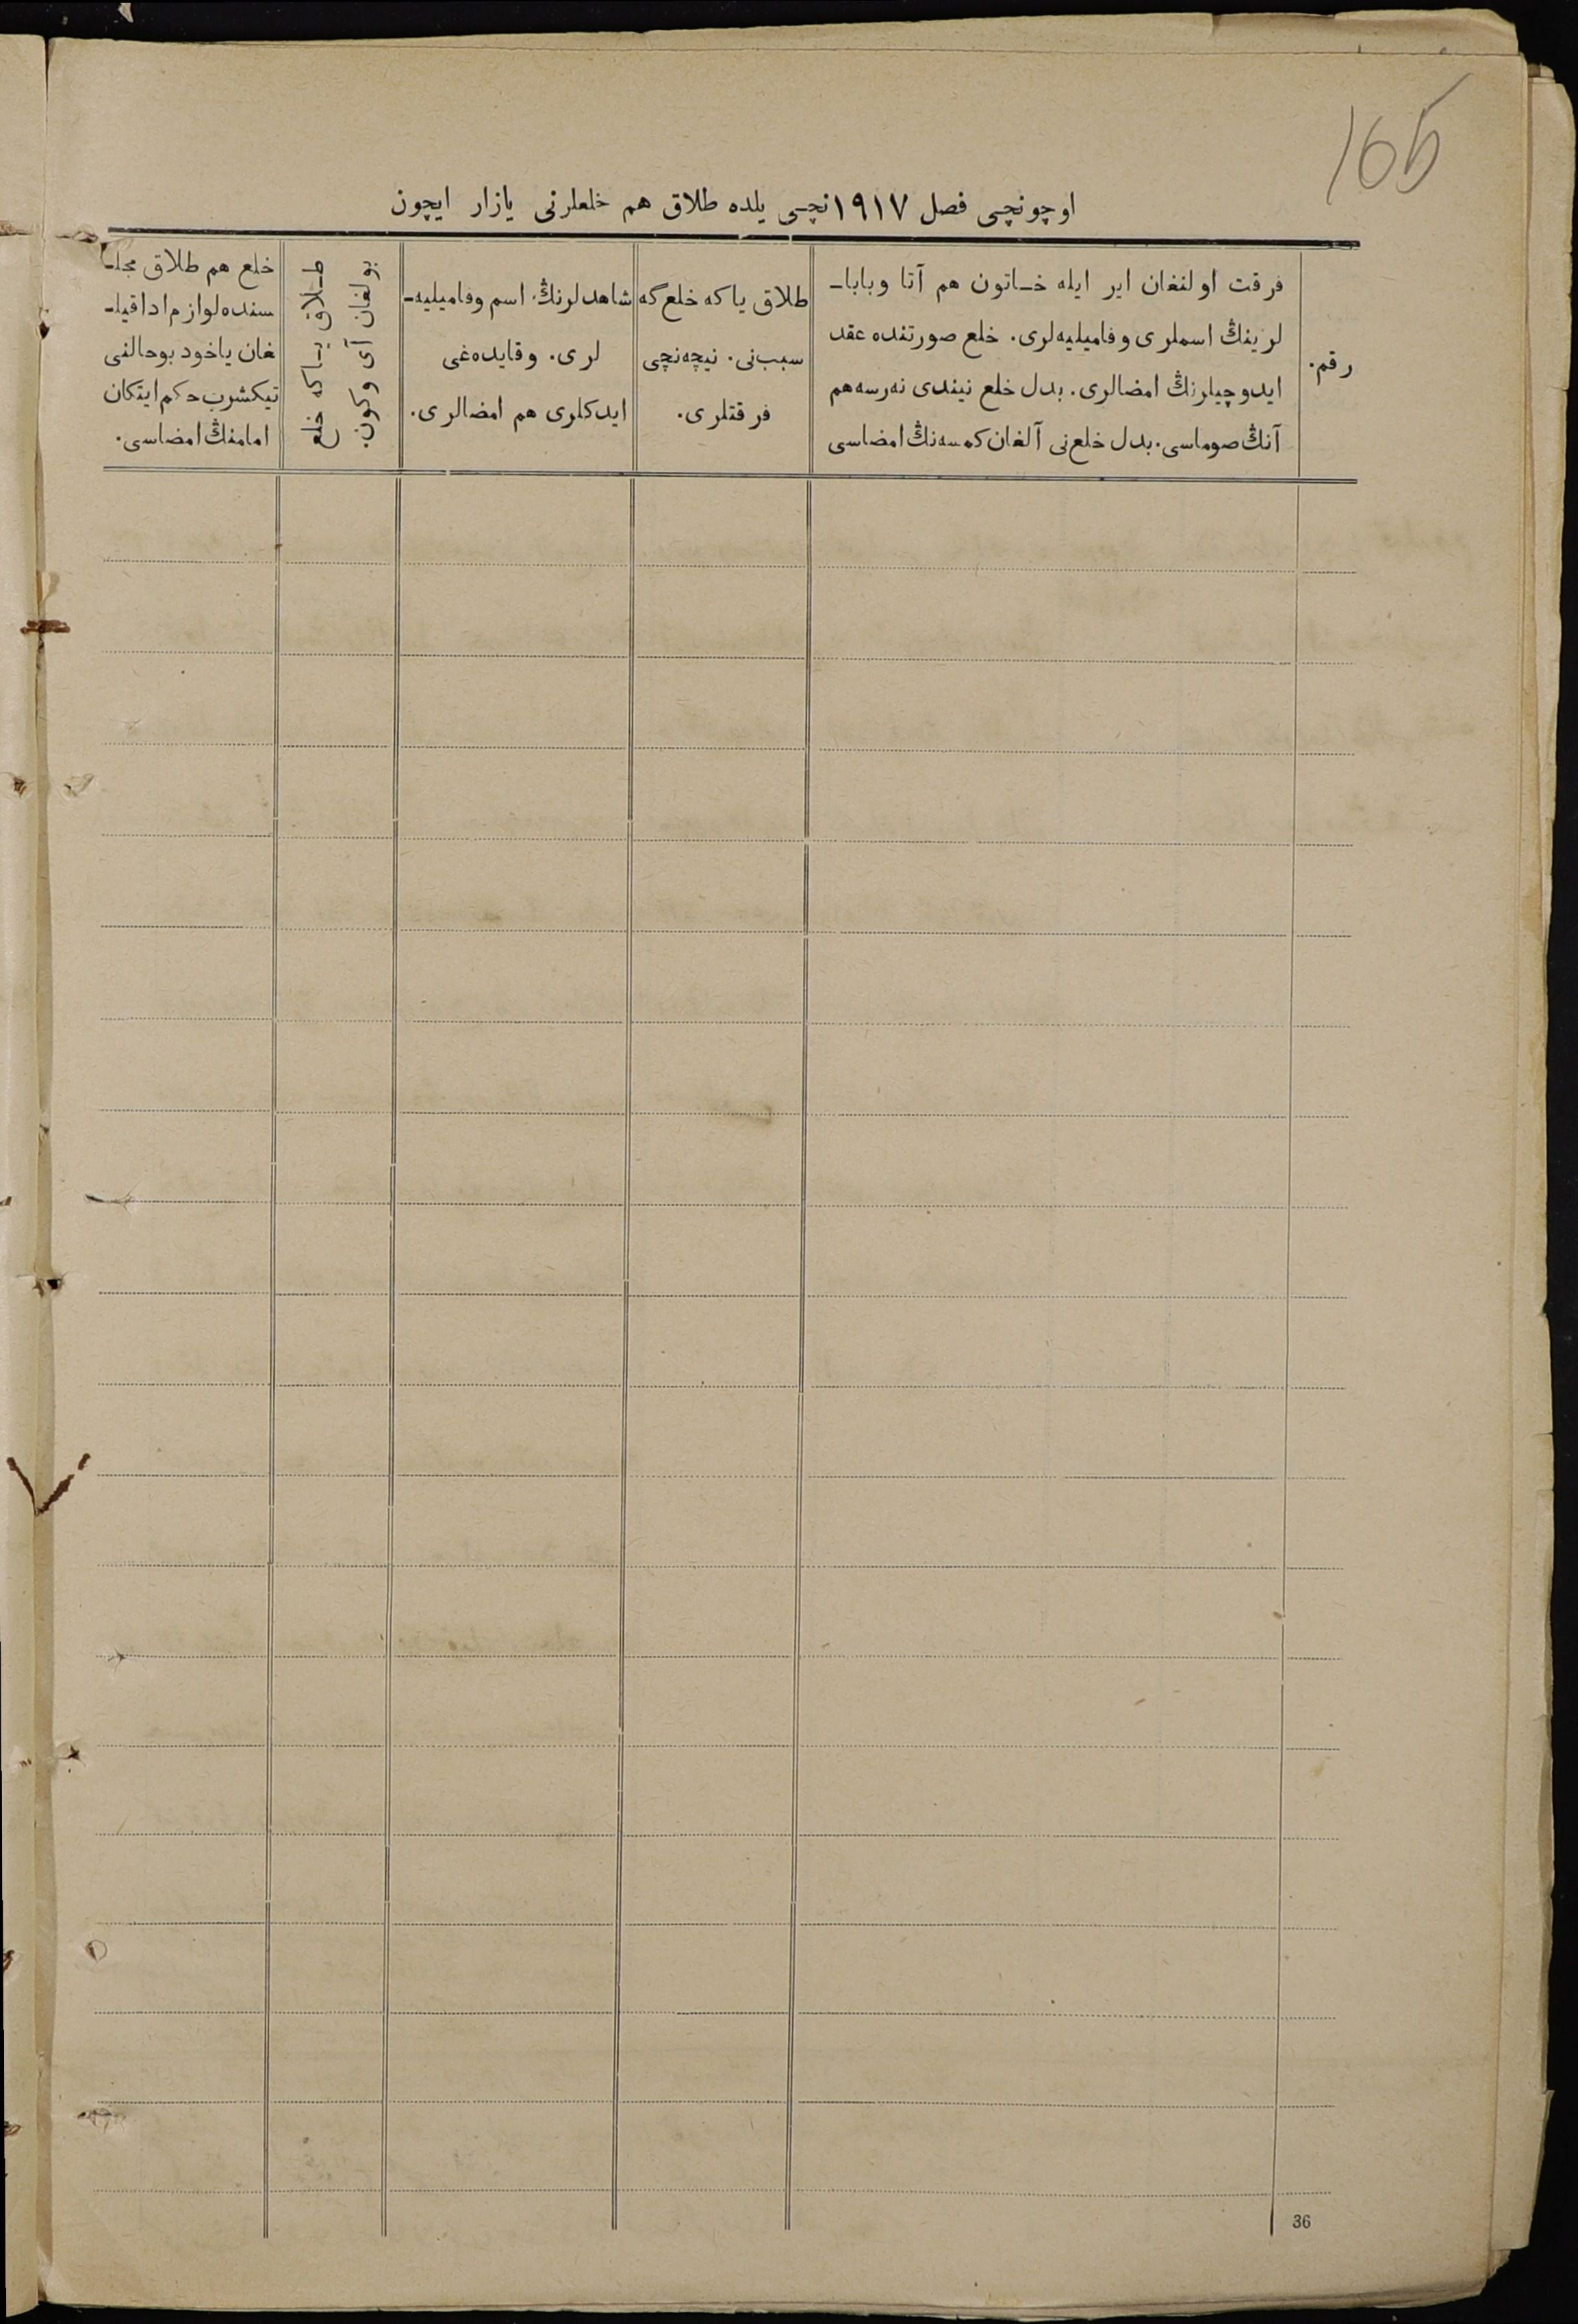 165
اوچونچی فصل ١٩١٧نچی یلده طلاق هم خلعلرنی یازار ایچون
رقم.
فرقت اولنغان ایر ایله خاتون هم آتا وبابا-
لرینڭ اسملری وفامیلیه‌لری. خلع صورتنده عقد
ایدوچیلرنڭ امضالری. بدل خلع نیندی نه‌رسه هم
آنڭ صوماسی. بدل خلع‌نی آلغان کمسه‌نڭ امضاسی
طلاق یاکه خلع‌گه
سبب‌نی. نیچه‌نچی
فرقتلری.
شاهدلرنڭ اسم وفامیلیه-
لری. وقایده‌غی
ایدکلری هم امضالری.
طلاق یاکه خلع
بولغان آی وکون.
خلع هم طلاق مجلـ
سنده لوازم ادا قیلـ
غان یاخود بوحالنی
تیکشرب حکم ایتکان
امامنڭ امضاسی.
36